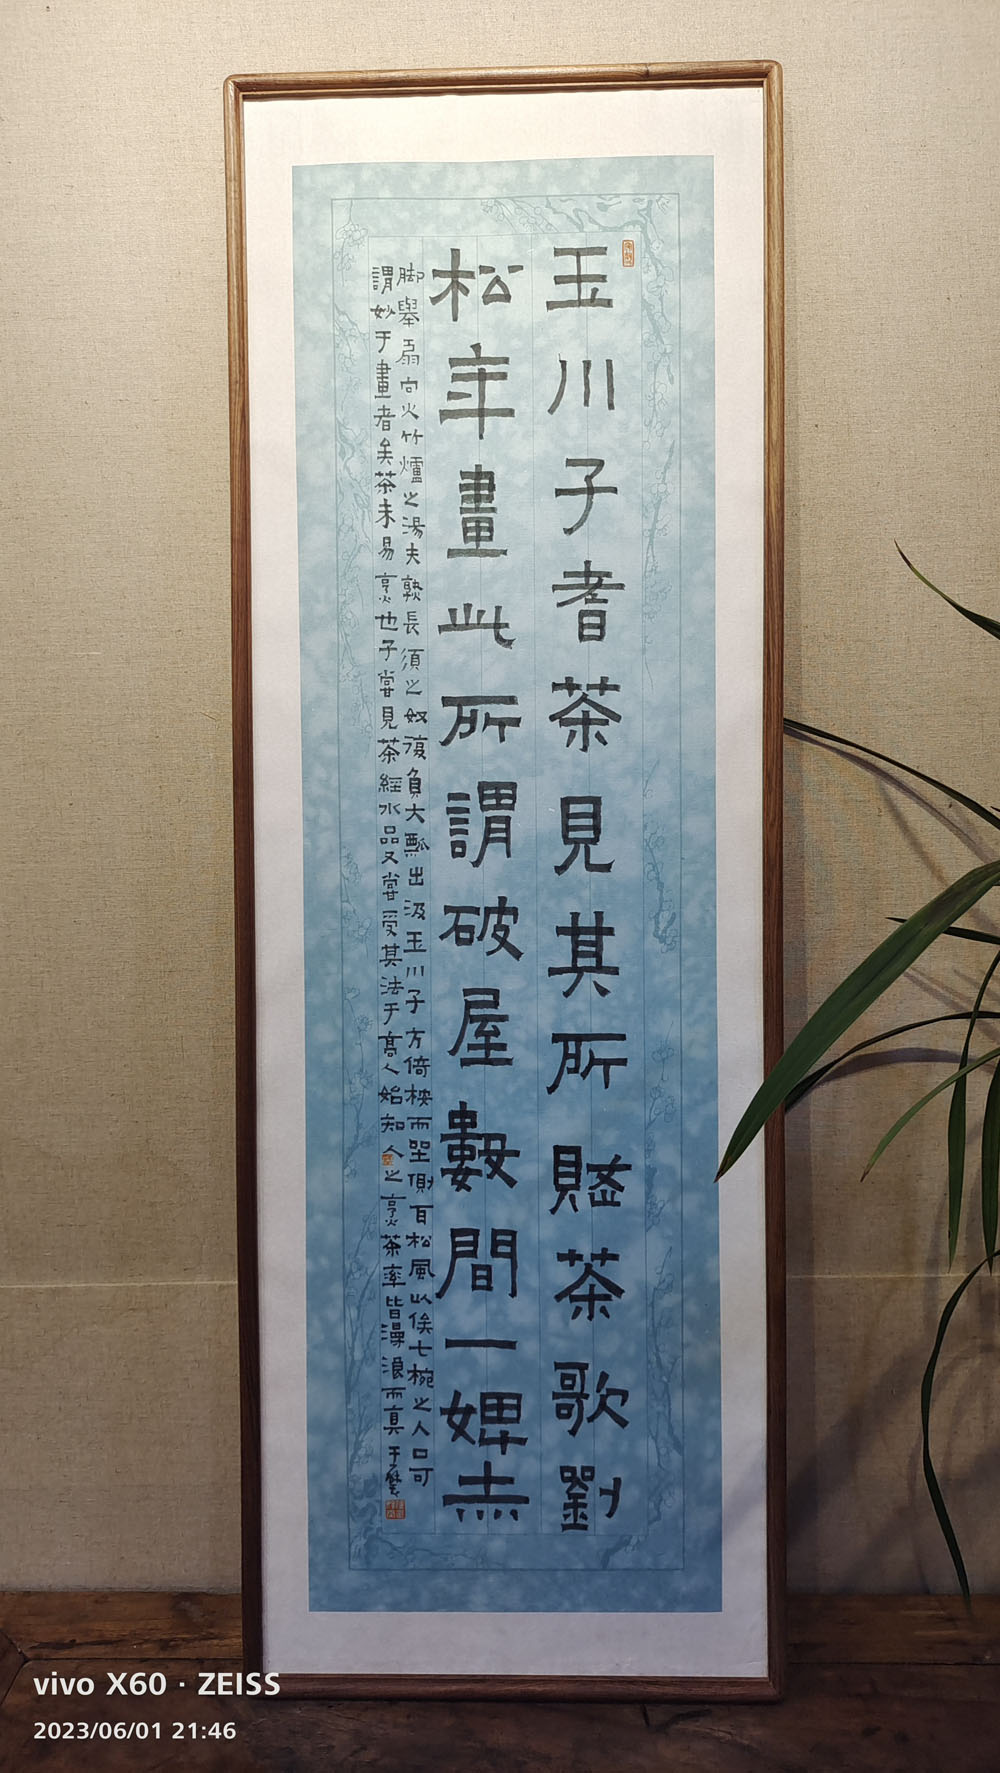 玉川子耆茶見其所賦茶歌劉
松年畫此所謂破屋數間一婢赤
脚舉扇向火竹爐之湯夫熟長須之奴復負大瓢出汲玉川子方倚桉而坐側耳松風以俟七椀之人口可
謂妙于畫者矣茶未易烹也子嘗見茶經水品又嘗受其法于高人始知人之烹茶率皆漫浪而真
vivo X60 · ZEISS
2023/06/01 21:46